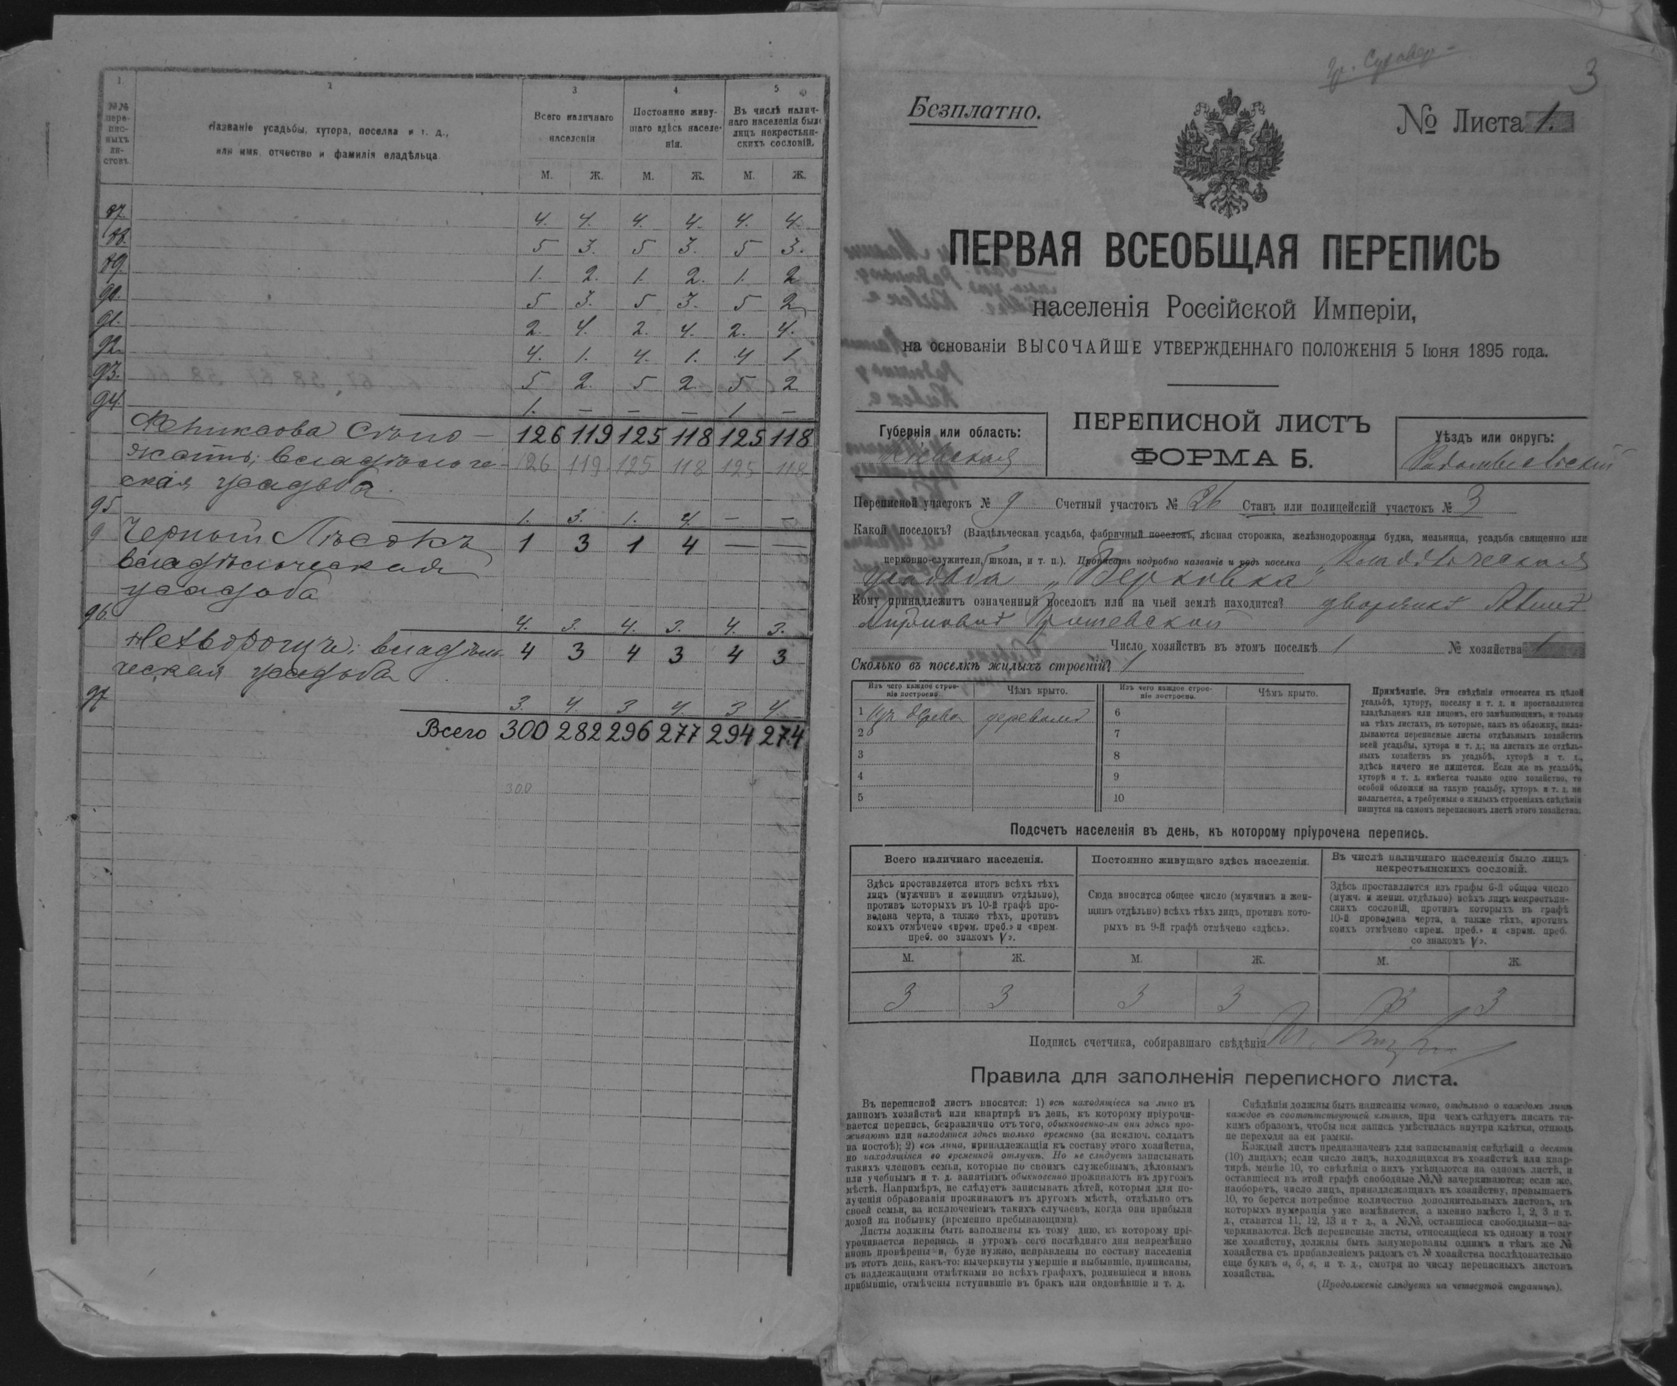 1
2
3
4
5
№№ пере-
пис-
ныхъ
ли-
стовъ.
Названіе усадьбы, хутора, поселка и т. д.,
или имя, отчество и фамилія владѣльца
Всего наличнаго
населенія
Постоянно живу-
щаго здѣсь населе-
нія.
Въ числѣ налич-
наго населенія было
лицъ некрестьян-
скихъ сословій.
М. Ж. М. Ж. М. Ж.
87. 4. 4. 4. 4. 4. 4.
88. 5 3. 5 3. 5 3.
89. 1. 2. 1. 2. 1. 2
90. 5 3. 5 3. 5 2
91. 2. 4. 2. 4. 2. 4.
92. 4. 1. 4. 1. 4 1
93. 5 2. 5 2. 5 2
94. 1. — — — 1. —
126 119 125 118 125 118
126 119 125 118 125 118
усадьба.
95 1. 3. 1. 4. — —
Черный Лѣсокъ 1 3 1 4 — —
владѣльческая
усадьба
96. 4. 3. 4. 3. 4. 3.
владѣль 4 3 4 3 4 3
ческая усадьба
97 3. 4. 3 4. 3 4.
Всего 300 282 296 277 294 274
300
3
Безплатно.
№ Листа 1.
ПЕРВАЯ ВСЕОБЩАЯ ПЕРЕПИСЬ
населенія Россійской Имперіи,
на основаніи ВЫСОЧАЙШЕ УТВЕРЖДЕННАГО ПОЛОЖЕНІЯ 5 Іюня 1895 года.
Губернія или область:
Кіевская
ПЕРЕПИСНОЙ ЛИСТЪ
ФОРМА Б.
Уѣздъ или округъ:
Радомысльскій
Переписной участокъ № 9 Счетный участокъ № 26 Станъ или полицейскій участокъ № 3
Какой поселокъ? (Владѣльческая усадьба, фабричный поселокъ, лѣсная сторожка, желѣзнодорожная будка, мельница, усадьба священно или
церковно-служителя, школа, и т. п.). Прописать подробно названіе и родъ поселка Владѣльческая
усадьба „Верховка"
Кому принадлежитъ означенный поселокъ или на чьей землѣ находится? дворянкѣ
Число хозяйствъ въ этомъ поселкѣ 1 № хозяйства 1
Сколько въ поселкѣ жилыхъ строеній? 1
Изъ чего каждое строе-
ніе построено.
Чѣмъ крыто.
Изъ чего каждое строе-
ніе построено.
Чѣмъ крыто.
1 Изъ дерева деревомъ 6
2 7
3 8
4 9
5 10
Примѣчаніе. Эти свѣдѣнія относятся къ цѣлой
усадьбѣ, хутору, поселку и т. д. и проставляются
владѣльцемъ или лицомъ, его замѣняющимъ, и только
на тѣхъ листахъ, въ которые, какъ въ обложку, вкла-
дываются переписные листы отдѣльныхъ хозяйствъ
всей усадьбы, хутора и т. д.; на листахъ же отдѣль-
ныхъ хозяйствъ въ усадьбѣ, хуторѣ и т. д.,
здѣсь ничего не пишется. Если же въ усадьбѣ,
хуторѣ и т. д. имѣется только одно хозяйство, то
особой обложки на такую усадьбу, хуторъ и т. д. не
полагается, а требуемыя о жилыхъ строеніяхъ свѣдѣнія
пишутся на самомъ переписномъ листѣ этого хозяйства.
Подсчетъ населенія въ день, къ которому пріурочена перепись.
Всего наличнаго населенія.
Здѣсь проставляется итогъ всѣхъ тѣхъ
лицъ (мужчинъ и женщинъ отдѣльно),
противъ которыхъ въ 10-й графѣ про-
ведена черта, а также тѣхъ, противъ
коихъ отмѣчено «врем. преб.» и «врем.
преб. со знакомъ V».
Постоянно живущаго здѣсь населенія.
Сюда вносится общее число (мужчинъ и жен-
щинъ отдѣльно) всѣхъ тѣхъ лицъ, противъ кото-
рыхъ въ 9-й графѣ отмѣчено «здѣсь».
Въ числѣ наличнаго населенія было лицъ
некрестьянскихъ сословій.
Здѣсь проставляется изъ графы 6-й общее число
(мужч. и женщ. отдѣльно) всѣхъ лицъ некрестьян-
скихъ сословій, противъ которыхъ въ графѣ
10-й проведена черта, а также тѣхъ, противъ
коихъ отмѣчено «врем. преб.» и «врем. преб.
со знакомъ V».
М. Ж. М. Ж. М. Ж.
3 3 3 3 3 3
Подпись счетчика, собиравшаго свѣдѣнія
Правила для заполненія переписного листа.
Въ переписной листъ вносятся: 1) всѣ находящіеся на лицо въ
данномъ хозяйствѣ или квартирѣ въ день, къ которому пріурочи-
вается перепись, безразлично отъ того, обыкновенно-ли они здѣсь про-
живаютъ или находятся здѣсь только временно (за исключ. солдатъ
на постоѣ); 2) всѣ лица, принадлежащія къ составу этого хозяйства,
но находящіяся во временной отлучкѣ. Но не слѣдуетъ записывать
такихъ членовъ семьи, которые по своимъ служебнымъ, дѣловымъ
или учебнымъ и т. д. занятіямъ обыкновенно проживаютъ въ другомъ
мѣстѣ. Напримѣръ, не слѣдуетъ записывать дѣтей, которыя для по-
лученія образованія проживаютъ въ другомъ мѣстѣ, отдѣльно отъ
своей семьи, за исключеніемъ такихъ случаевъ, когда они прибыли
домой на побывку (временно пребывающими).
Листы должны быть заполнены къ тому дню, къ которому прі-
урочивается перепись, и утромъ сего послѣдняго дня непремѣнно
вновь провѣрены и, буде нужно, исправлены по составу населенія
въ этотъ день, какъ-то: вычеркнуты умершіе и выбывшіе, приписаны,
съ надлежащими отмѣтками во всѣхъ графахъ, родившіеся и вновь
прибывшіе, отмѣчены вступившіе въ бракъ или овдовѣвшіе и т. д.
Свѣдѣнія должны быть написаны четко, отдѣльно о каждомъ лицѣ
каждое въ соотвѣтствующей клѣткѣ, при чемъ слѣдуетъ писать та-
кимъ образомъ, чтобы вся запись умѣстилась внутри клѣтки, отнюдь
не переходя за ея рамки.
Каждый листъ предназначенъ для записыванія свѣдѣній о десяти
(10) лицахъ; если число лицъ, находящихся въ хозяйствѣ или квар-
тирѣ, менѣе 10, то свѣдѣнія о нихъ умѣщаются на одномъ листѣ, и
оставшіеся въ этой графѣ свободные №№ зачеркиваются; если же,
наоборотъ, число лицъ, принадлежащихъ къ хозяйству, превышаетъ
10, то берется потребное количество дополнительныхъ листовъ, въ
которыхъ нумерація уже измѣняется, а именно вмѣсто 1, 2, 3 и т.
д., ставится 11, 12, 13 и т д., а №№, оставшіеся свободными—за-
черкиваются. Всѣ переписные листы, относящіеся къ одному и тому
же хозяйству, должны быть занумерованы однимъ и тѣмъ же №
хозяйства съ прибавленіемъ рядомъ съ № хозяйства послѣдовательно
еще буквъ а, б, в, и т. д., смотря по числу переписныхъ листовъ
хозяйства.
(Продолженіе слѣдуетъ на четвертой страницѣ).